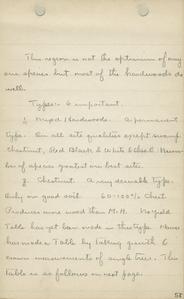 This region is not the optimum of any
one species but most of the hardwoods do
well.
Types:- 6 important.
1. Mixed Hardwoods. A permanent
type. On all site qualities except swamp.
Chestnut, Red Black & White & Chest. Num-
ber of species greatest on best site.
2. Chestnut. A very desirable type.
Only on good soil. 60-100% Chest.
Produces more wood than M.H. No yield
Table has yet been made in this type.
has made a Table by taking growth &
crown measurements of single trees. This
table is as follows on next page.